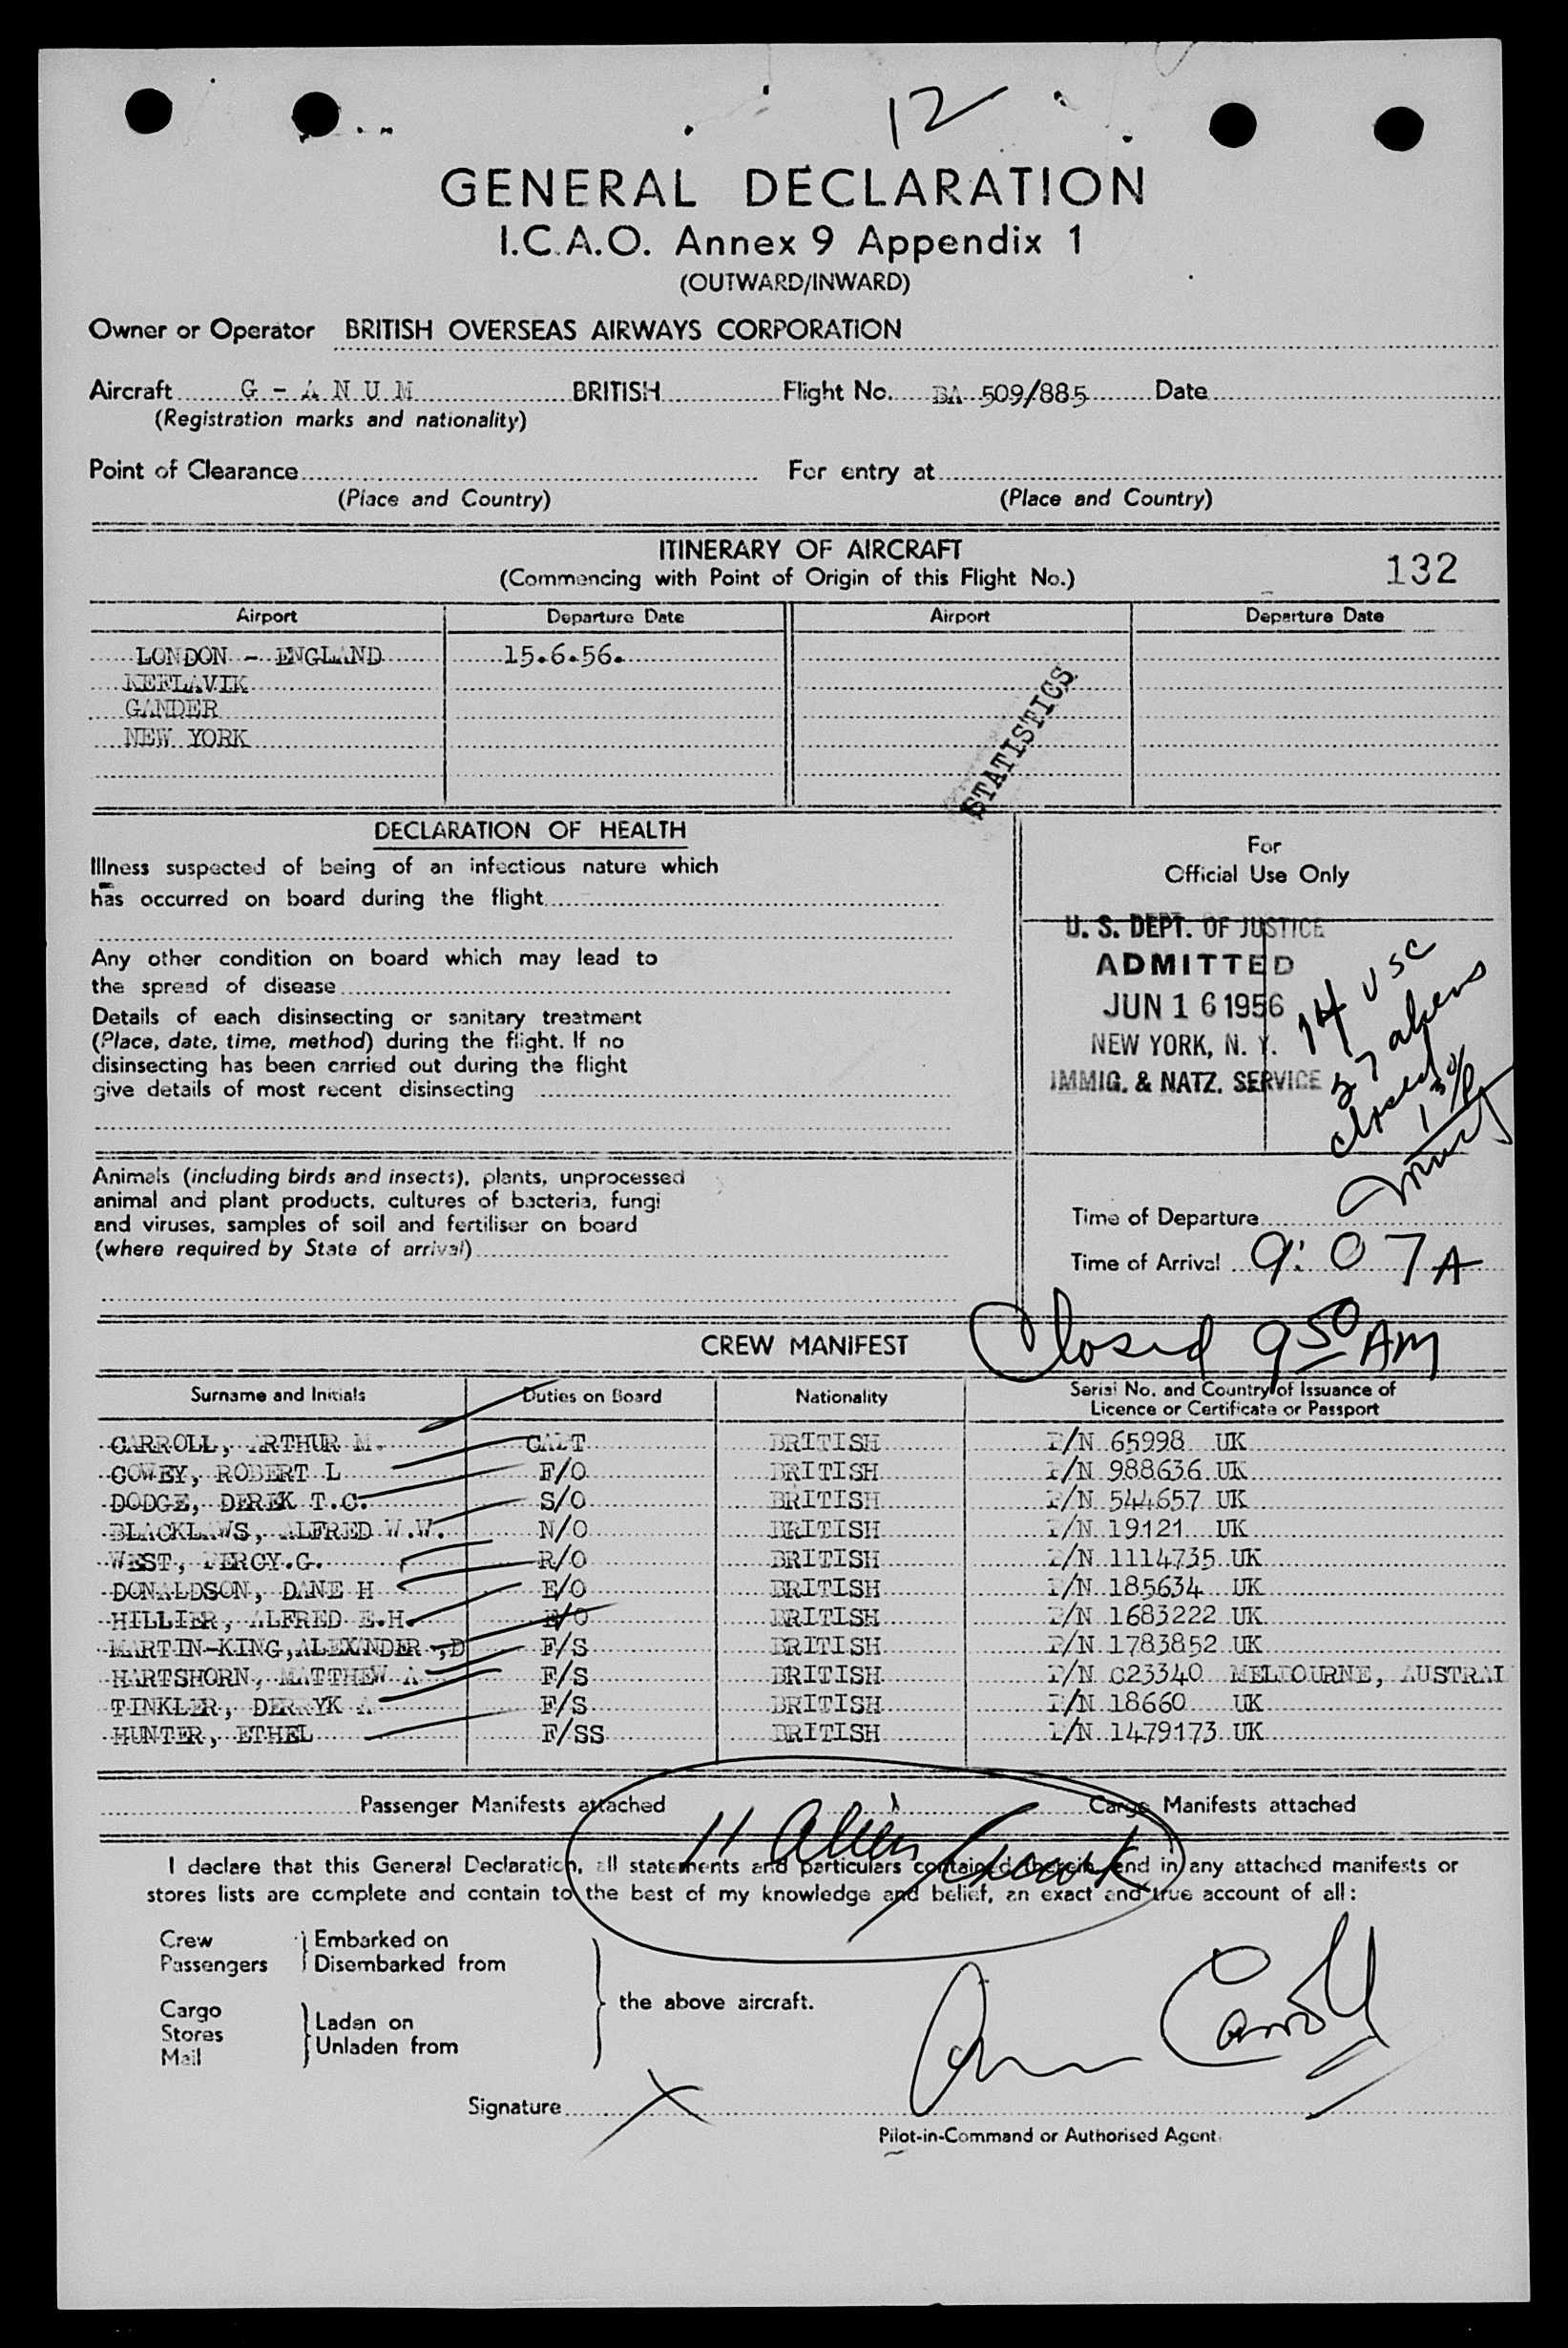 12
GENERAL DECLARATION
I.C.A.O. Annex 9 Appendix 1
(OUTWARD/INWARD)
Owner or Operator BRITISH OVERSEAS AIRWAYS CORPORATION
Aircraft G - A N U M BRITISH Flight No. BA 509/885 Date
(Registration marks and nationality)
Point of Clearance For entry at
(Place and Country) (Place and Country)
ITINERARY OF AIRCRAFT
(Commencing with Point of Origin of this Flight No.) 132
Airport Departure Date Airport Departure Date
LONDON - ENGLAND 15.6.56.
KEFLAVIK
GANDER
NEW YORK
STATISTICS
DECLARATION OF HEALTH
Illness suspected of being of an infectious nature which
has occurred on board during the flight
Any other condition on board which may lead to
the spread of disease
Details of each disinsecting or sanitary treatment
(Place, date, time, method) during the flight. If no
disinsecting has been carried out during the flight
give details of most recent disinsecting
Animals (including birds and insects), plants, unprocessed
animal and plant products, cultures of bacteria, fungi
and viruses, samples of soil and fertiliser on board
(where required by State of arrival)
For
Official Use Only
U. S. DEPT. OF JUSTICE
ADMITTED
JUN 16 1956
NEW YORK, N. Y.
IMMIG. & NATZ. SERVICE
14 USC
37 aliens
closed
Time of Departure
Time of Arrival 9:07 A
Closed 9 50 AM
CREW MANIFEST
Surname and Initials Duties on Board Nationality Serial No. and Country of Issuance of
Licence or Certificate or Passport
CARROLL, ARTHUR M. CAPT BRITISH P/N 65998 UK
COWEY, ROBERT L F/O BRITISH P/N 988636 UK
DODGE, DEREK T.C. S/O BRITISH P/N 544657 UK
BLACKLAWS, ALFRED W.W. N/O BRITISH P/N 19121 UK
WEST, PERCY.G. R/O BRITISH P/N 1114735 UK
DONALDSON, DANE H E/O BRITISH P/N 185634 UK
HILLIER, ALFRED E.H. E/O BRITISH P/N 1683222 UK
MARTIN-KING, ALEXANDER -,D F/S BRITISH P/N 1783852 UK
HARTSHORN, MATTHEW A F/S BRITISH P/N C23340 MELBOURNE, AUSTRAL
TINKLER, DERRYK A F/S BRITISH P/N 18660 UK
HUNTER, ETHEL F/SS BRITISH P/N 1479173 UK
Passenger Manifests attached Cargo Manifests attached
11 Alien Crew
I declare that this General Declaration, all statements and particulars contained therein, and in any attached manifests or
stores lists are complete and contain to the best of my knowledge and belief, an exact and true account of all:
Crew Embarked on
Passengers Disembarked from
the above aircraft.
Cargo
Stores Laden on
Mail Unladen from
Carroll
Signature X
Pilot-in-Command or Authorised Agent.